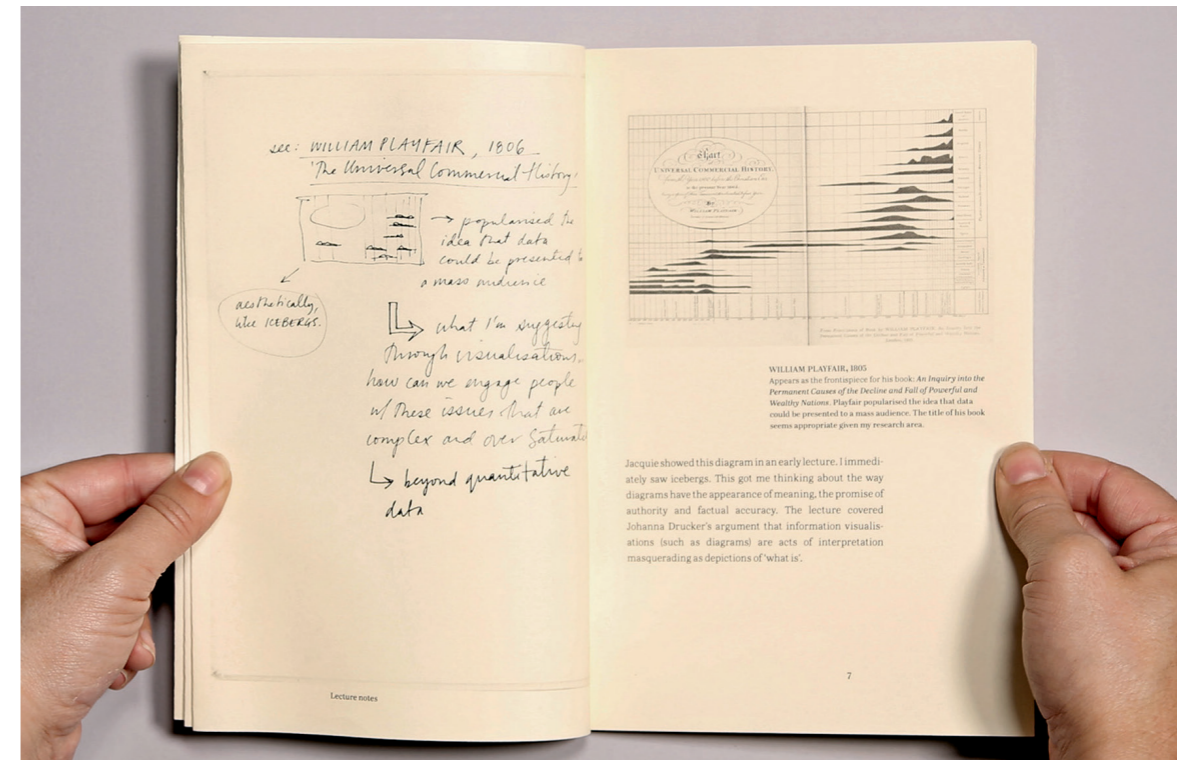 see: WILLIAM PLAYFAIR, 1806
'The Universal Commercial History'
→ popularised the
idea that data
could be presented to
a mass audience
aesthetically,
like ICEBERGS.
what I'm suggesting
through visualisations.
how can we engage people
w/ these issues that are
complex and over saturated
beyond quantitative
data
Lecture notes
Chart
UNIVERSAL COMMERCIAL HISTORY
By
WILLIAM PLAYFAIR
WILLIAM PLAYFAIR, 1805
Appears as the frontispiece for his book: An Inquiry into the
Permanent Causes of the Decline and Fall of Powerful and
Wealthy Nations. Playfair popularised the idea that data
could be presented to a mass audience. The title of his book
seems appropriate given my research area.
Jacquie showed this diagram in an early lecture. I immedi-
ately saw icebergs. This got me thinking about the way
diagrams have the appearance of meaning, the promise of
authority and factual accuracy. The lecture covered
Johanna Drucker's argument that information visualis-
ations (such as diagrams) are acts of interpretation
masquerading as depictions of 'what is'.
7